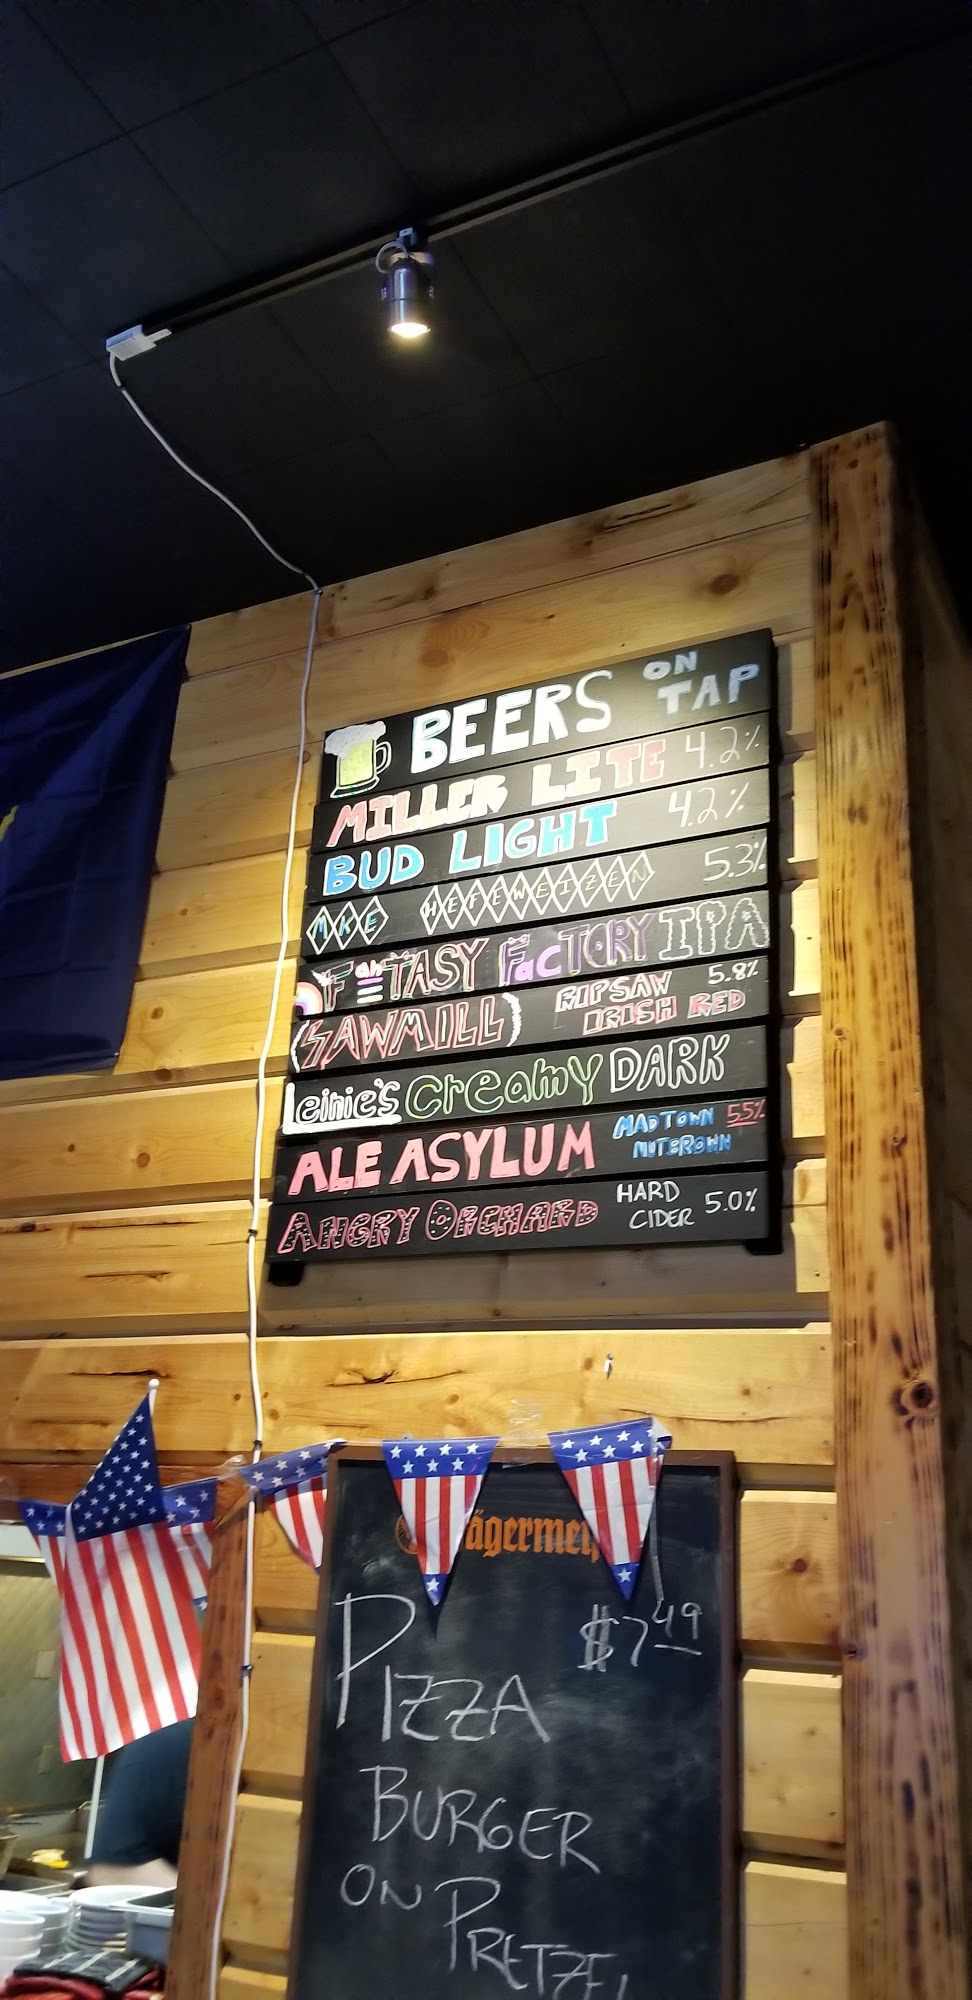 BEERS ON TAP
MILLER LITE 4.2%
BUD LIGHT 4.2%
MKE HEFEWEIZEN 5.3%
FanTASY FaCTORY IPA
(SAWMILL) RIPSAW 5.8%
IRISH RED
Leinie's Creamy DARK
ALE ASYLUM MADTOWN 5.5%
NUTBROWN
ANGRY ORCHARD HARD CIDER 5.0%
PIZZA $7.49
BURGER
ON PRETZEL